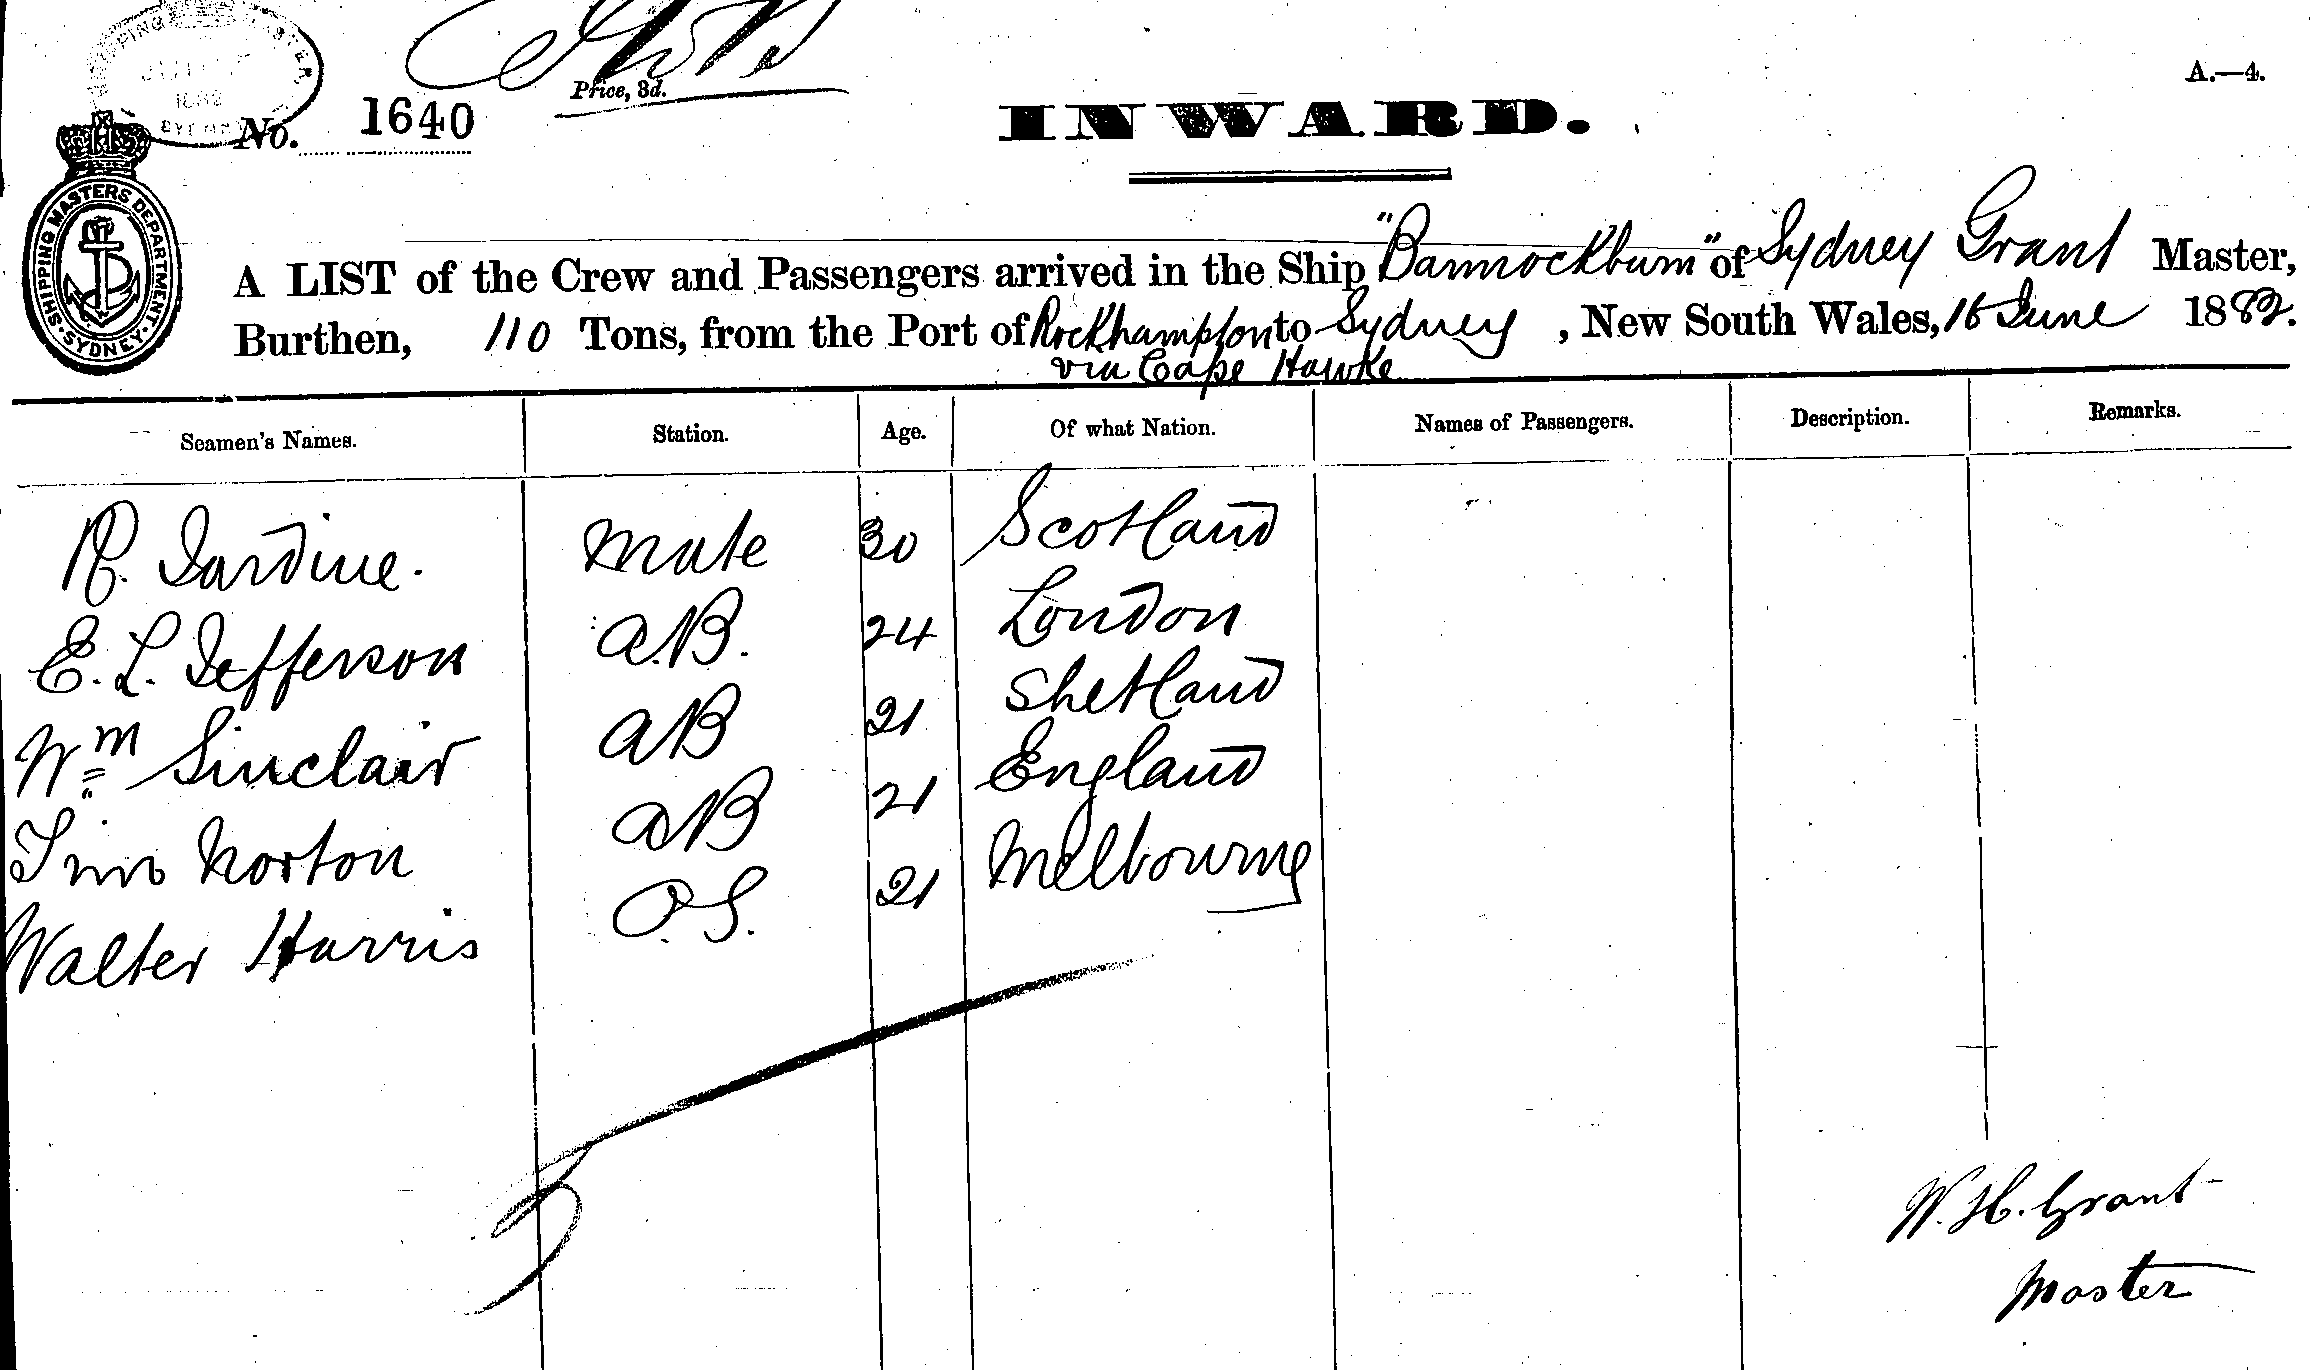 A.—4.
Price, 3d.
No. 1640
INWARD.
SHIPPING MASTERS DEPARTMENT. SYDNEY.
A LIST of the Crew and Passengers arrived in the Ship "Bannockburn" of Sydney Grant Master,
Burthen, 110 Tons, from the Port of Rockhampton to Sydney, New South Wales, 16 June 1882.
via Cape Hawke
Seamen's Names. Station. Age. Of what Nation. Names of Passengers. Description. Remarks.
R. Jardine. Mate 30 Scotland
E. L. Jefferson A.B. 24 London
Wm Sinclair AB 21 Shetland
Norton AB 21 England
Walter Harris O.S. 21 Melbourne
W. H. Grant
Master